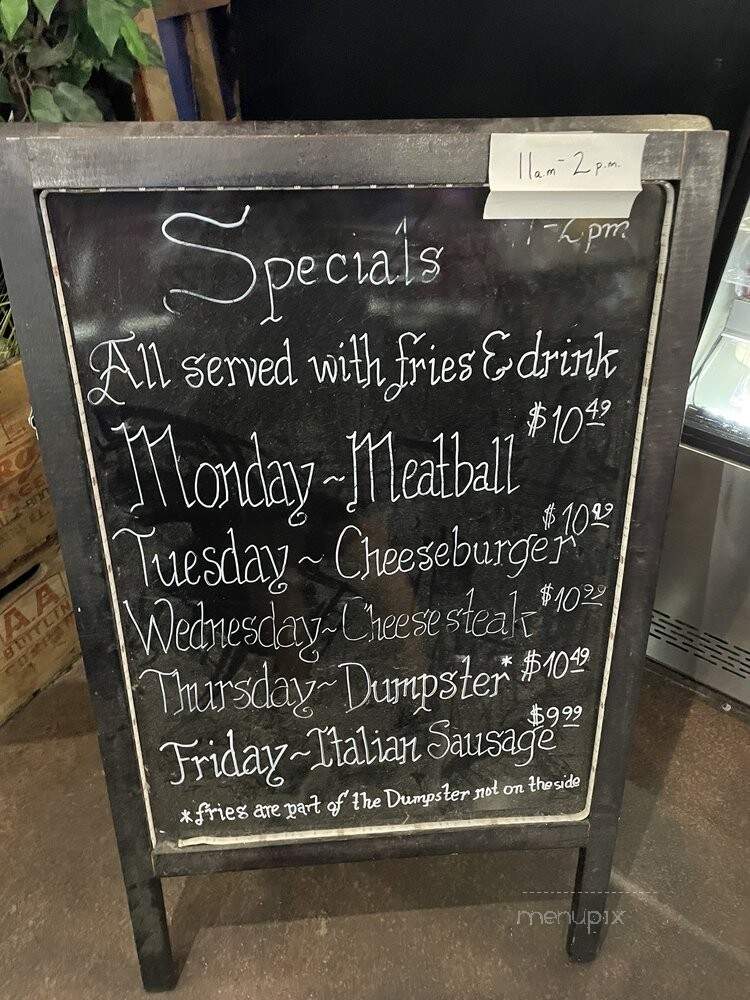 11a.m - 2p.m.
-2pm
Specials
All served with fries & drink
Monday~Meatball $10.49
Tuesday~Cheeseburger $10.99
Wednesday~Cheesesteak $10.99
Thursday~Dumpster* $10.49
Friday~Italian Sausage $9.99
*fries are part of the Dumpster not on the side
menupix